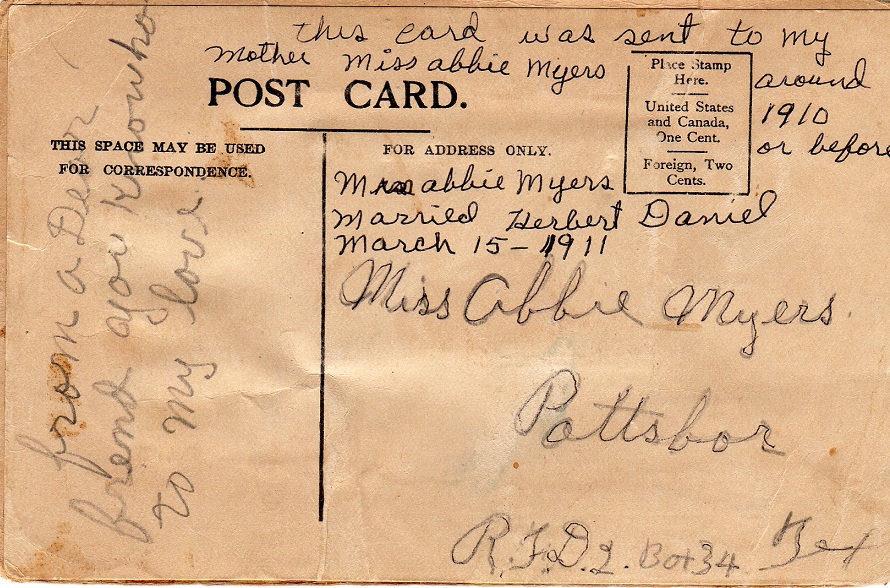 this card was sent to my
mother Miss abbie Myers
around
1910
or before
POST CARD.
Place Stamp
Here.
United States
and Canada,
One Cent.
Foreign, Two
Cents.
THIS SPACE MAY BE USED
FOR CORRESPONDENCE.
from a Dear
frend you know who
to my love
FOR ADDRESS ONLY.
abbie Myers
married Herbert Daniel
march 15-1911
Miss Abbie Myers
Pottsbor
R.F.D.2. Box 34 Tex